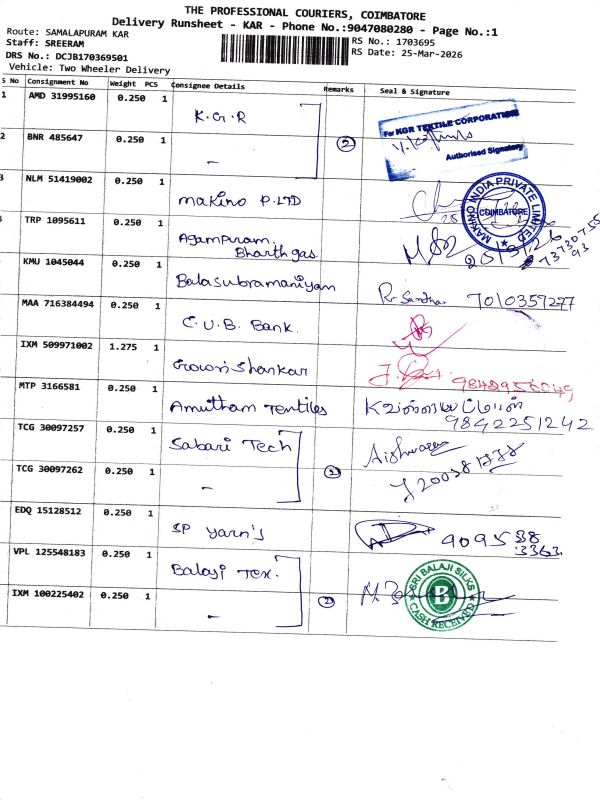 THE PROFESSIONAL COURIERS, COIMBATORE
Delivery Runsheet - KAR - Phone No.:9047080280 - Page No.:1
Route: SAMALAPURAM KAR
Staff: SREERAM
DRS No.: DCJB170369501
Vehicle: Two Wheeler Delivery
RS No.: 1703695
RS Date: 25-Mar-2026
S No Consignment No Weight PCS Consignee Details Remarks Seal & Signature
1 AMD 31995160 0.250 1 K.G.R For KGR TEXTILE CORPORATION
Authorised Signatory
2 BNR 485647 0.250 1 - 2
3 NLM 51419002 0.250 1 Makino P.LTD MAKINO INDIA PRIVATE LIMITED COIMBATORE
TRP 1095611 0.250 1 Agampuram Bharth gas 25/3/26
KMU 1045044 0.250 1 Balasubramaniyam 7010357277
MAA 716384494 0.250 1 C.U.B. Bank.
IXM 509971002 1.275 1 Gowri Shankar
MTP 3166581 0.250 1 Amutham Textiles 9842251242
TCG 30097257 0.250 1 Sabari Tech Aishwarya
TCG 30097262 0.250 1 - 2
EDQ 15128512 0.250 1 SP Yarn's 9095 538
3363
VPL 125548183 0.250 1 Balaji Tex. SRI BALAJI SILKS B CASH RECEIVED
IXM 100225402 0.250 1 - 2